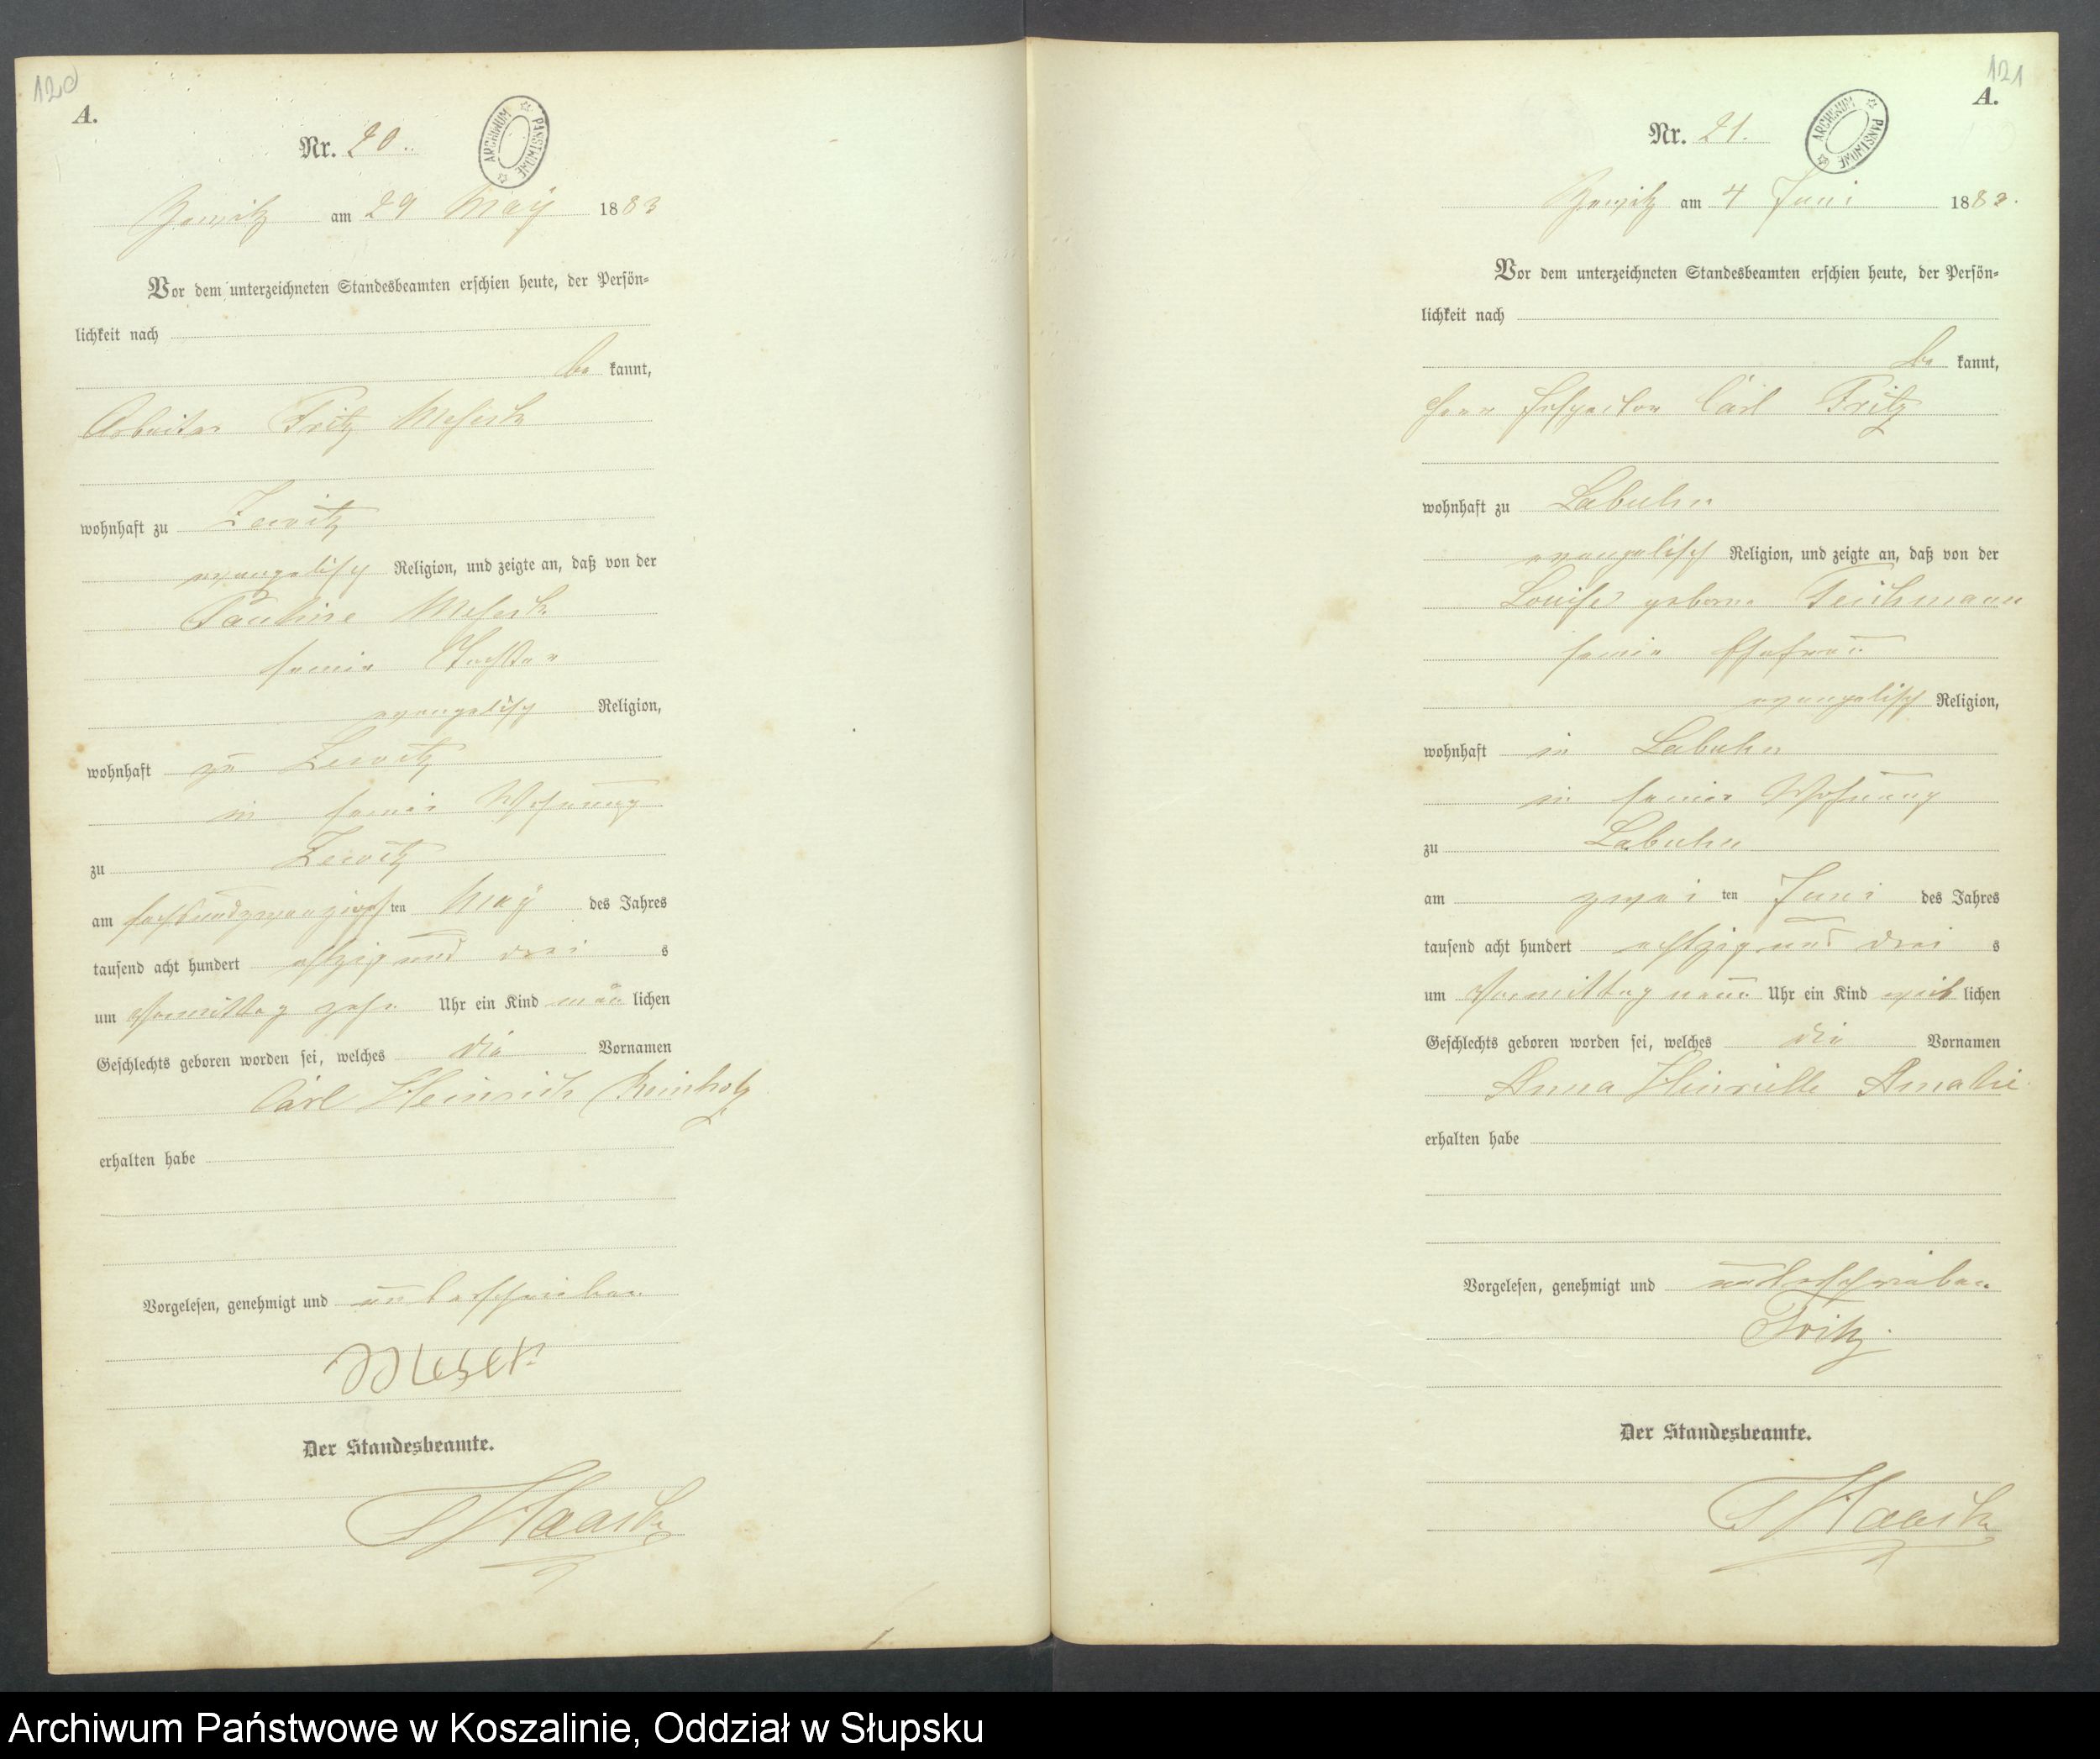 120
A.
Nr. 20.
ARCHIWUM PAŃSTWOWE
am 29 May 1883
Vor dem unterzeichneten Standesbeamten erschien heute, der Persön-
lichkeit nach
be kannt,
Arbeiter Fritz
wohnhaft zu Zewitz
evangelisch Religion, und zeigte an, daß von der
Pauline
seine Tochter
evangelisch Religion,
wohnhaft zu Zewitz
in seiner Wohnung
zu Zewitz
am sechsundzwanzigsten May des Jahres
tausend acht hundert achtzig und drei s
um Vormittag zehn Uhr ein Kind män lichen
Geschlechts geboren worden sei, welches die Vornamen
Carl Heinrich Reinholz
erhalten habe
Vorgelesen, genehmigt und unterschrieben
Der Standesbeamte.
121
A.
Nr. 21.
ARCHIWUM PAŃSTWOWE
am 4 Juni 1883.
Vor dem unterzeichneten Standesbeamten erschien heute, der Persön-
lichkeit nach
be kannt,
Herr Inspector Carl Fritz
wohnhaft zu Labuhn
evangelisch Religion, und zeigte an, daß von der
Louise geborne Teichmann
seine Ehefrau
evangelisch Religion,
wohnhaft in Labuhn
in seiner Wohnung
zu Labuhn
am zwei ten Juni des Jahres
tausend acht hundert achtzig und drei s
um Vormittag neun Uhr ein Kind weib lichen
Geschlechts geboren worden sei, welches die Vornamen
Anna Hinriette Amalie
erhalten habe
Vorgelesen, genehmigt und unterschrieben
Fritz.
Der Standesbeamte.
Archiwum Państwowe w Koszalinie, Oddział w Słupsku